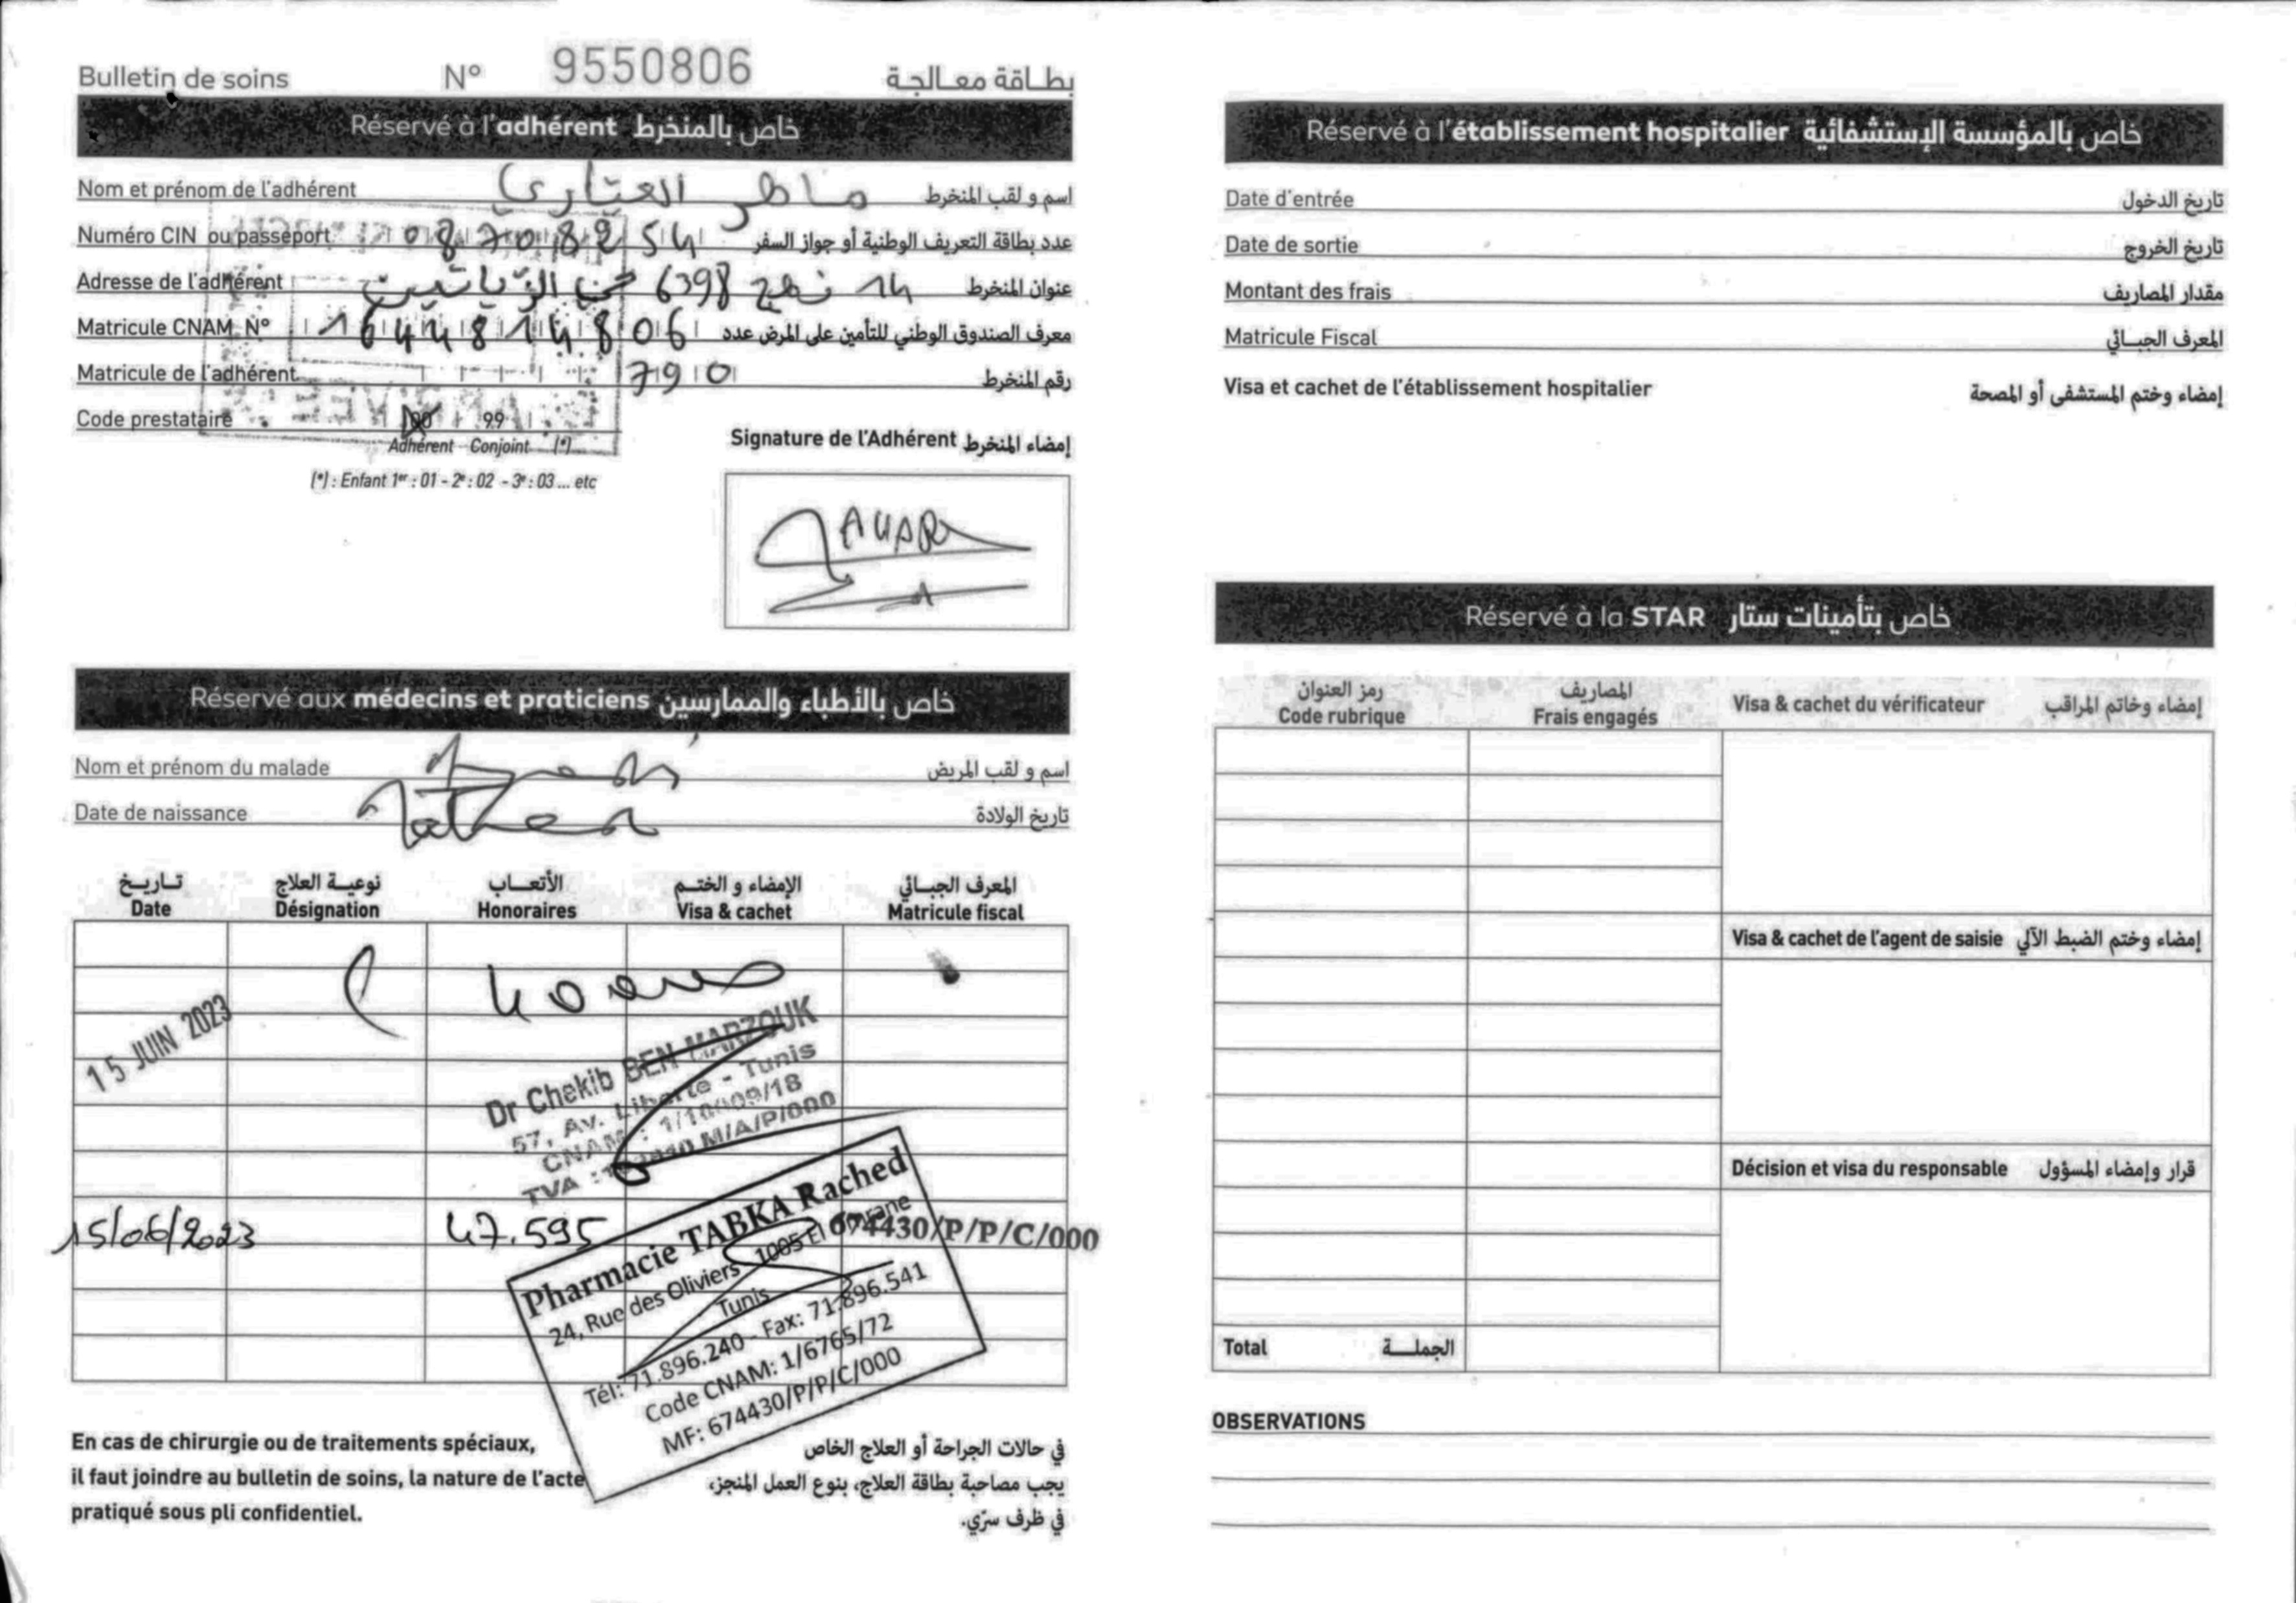 Bulletin de soins N° 9550806 بطاقة معالجة
Réservé à l'adhérent خاص بالمنخرط
Nom et prénom de l'adhérent ماهر العياري اسم و لقب المنخرط
Numéro CIN ou passeport 08708254 عدد بطاقة التعريف الوطنية أو جواز السفر
Adresse de l'adhérent 14 نهج 6398 حي الزياتين عنوان المنخرط
Matricule CNAM N° 1644814806 معرف الصندوق الوطني للتأمين على المرض عدد
Matricule de l'adhérent 790 رقم المنخرط
Code prestataire 00 99
Adhérent Conjoint (*)
(*) : Enfant 1er : 01 - 2e : 02 - 3e : 03 ... etc
Signature de l'Adhérent إمضاء المنخرط
Réservé aux médecins et praticiens خاص بالأطباء والممارسين
Nom et prénom du malade اسم و لقب المريض
Date de naissance تاريخ الولادة
تاريخ نوعية العلاج الأتعاب الإمضاء و الختم المعرف الجبائي
Date Désignation Honoraires Visa & cachet Matricule fiscal
15 JUIN 2023
Dr Chekib BEN MARZOUK
57, Av. Liberte - Tunis
15/06/2023 47.595 674430/P/P/C/000
Pharmacie TABKA Rached
24, Rue des Oliviers 1005 El Omrane
Tunis
Tél: 71.896.240 - Fax: 71.896.541
Code CNAM: 1/6765/72
MF: 674430/P/P/C/000
En cas de chirurgie ou de traitements spéciaux,
il faut joindre au bulletin de soins, la nature de l'acte
pratiqué sous pli confidentiel.
في حالات الجراحة أو العلاج الخاص
يجب مصاحبة بطاقة العلاج، بنوع العمل المنجز،
في ظرف سرّي.
Réservé à l'établissement hospitalier خاص بالمؤسسة الإستشفائية
Date d'entrée تاريخ الدخول
Date de sortie تاريخ الخروج
Montant des frais مقدار المصاريف
Matricule Fiscal المعرف الجبائي
Visa et cachet de l'établissement hospitalier إمضاء وختم المستشفى أو المصحة
Réservé à la STAR خاص بتأمينات ستار
رمز العنوان المصاريف
Code rubrique Frais engagés Visa & cachet du vérificateur إمضاء وخاتم المراقب
Visa & cachet de l'agent de saisie إمضاء وختم الضبط الآلي
Décision et visa du responsable قرار وإمضاء المسؤول
Total الجملة
OBSERVATIONS